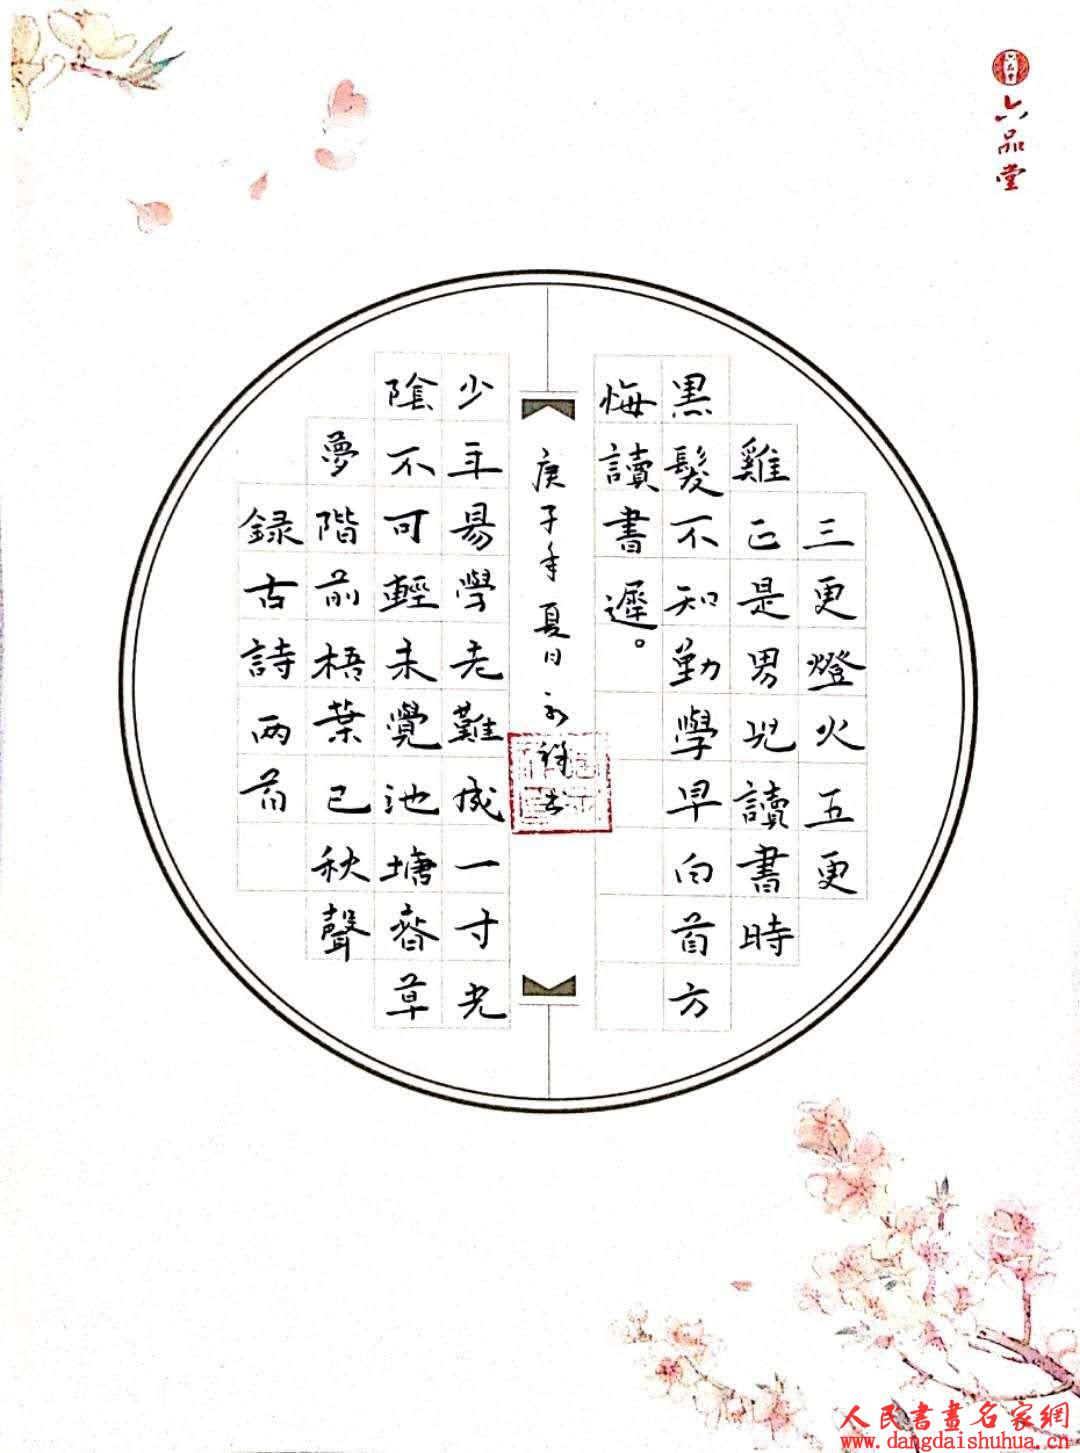 六品堂
三更燈火五更
雞正是男兒讀書時
黑髮不知勤學早白首方
悔讀書遲。
少年易學老難成一寸光
陰不可輕未覺池塘春草
夢階前梧葉已秋聲
録古詩兩首
庚子年夏日
人民書畫名家網
www.dangdaishuhua.cn